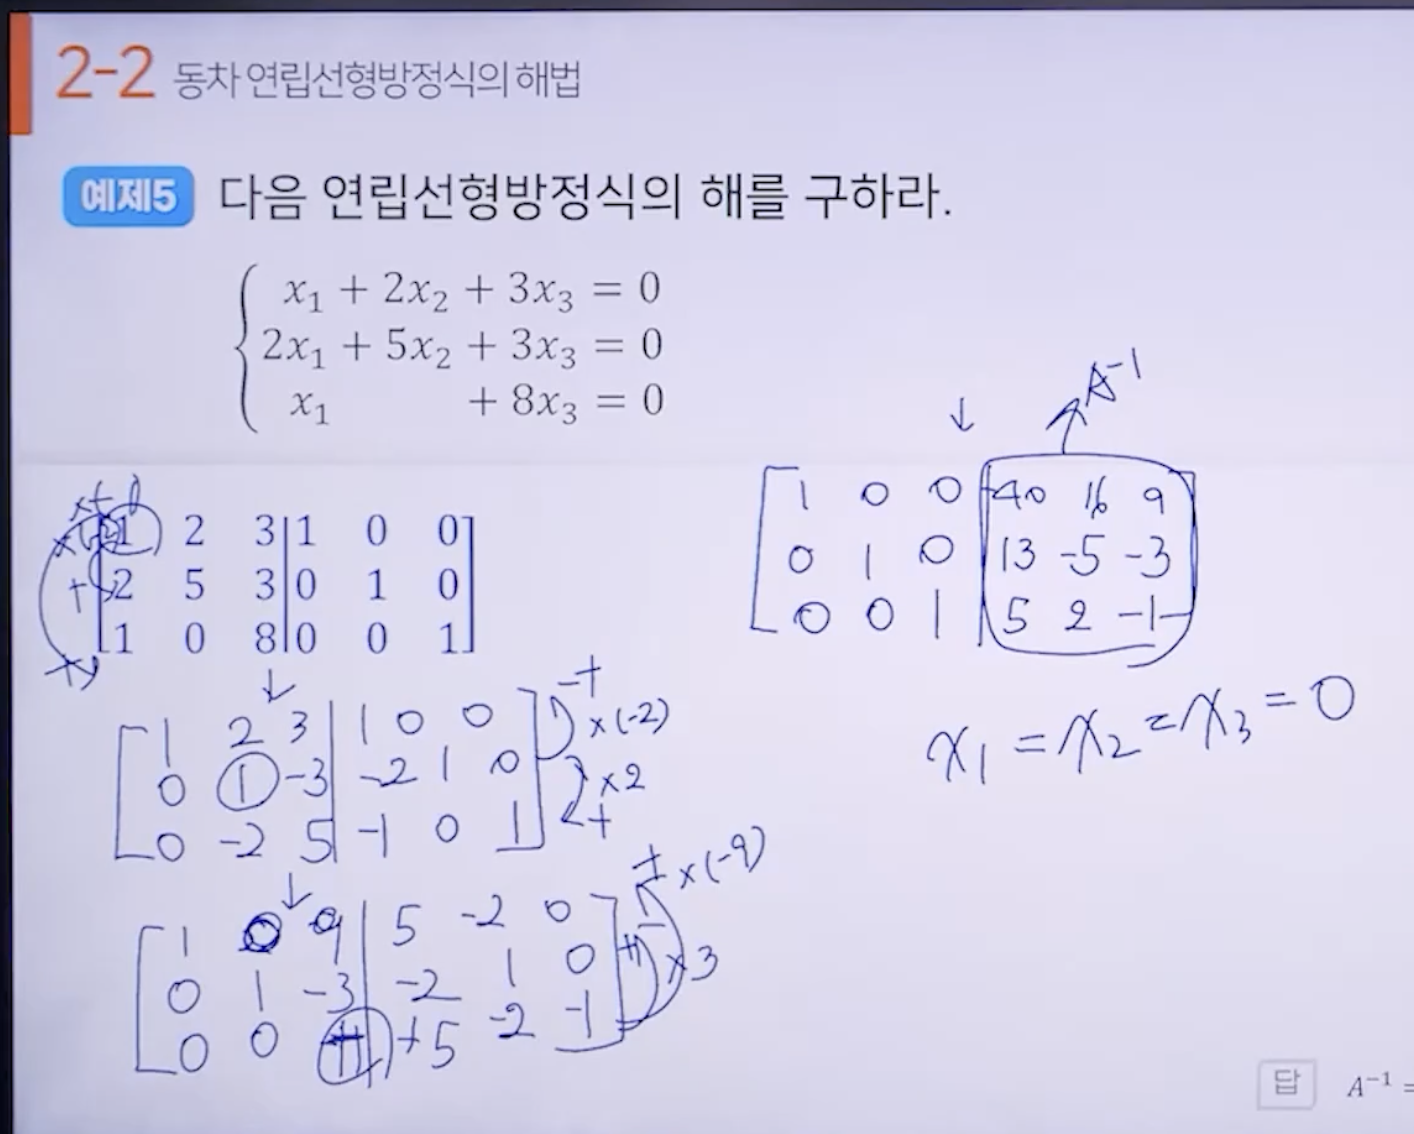 2-2 동차 연립선형방정식의 해법
예제5 다음 연립선형방정식의 해를 구하라.
x₁ + 2x₂ + 3x₃ = 0
2x₁ + 5x₂ + 3x₃ = 0
x₁ + 8x₃ = 0
1 2 3 | 1 0 0
2 5 3 | 0 1 0
1 0 8 | 0 0 1
↓
1 2 3 | 1 0 0
0 1 -3 | -2 1 0
0 -2 5 | -1 0 1
+
×(-2)
×2
+
↓
1 0 9 | 5 -2 0
0 1 -3 | -2 1 0
0 0 1 | +5 -2 -1
+ ×(-9)
+ ×3
↓
A⁻¹
1 0 0 | -40 16 9
0 1 0 | 13 -5 -3
0 0 1 | 5 2 -1
x₁ = x₂ = x₃ = 0
답 A⁻¹ =